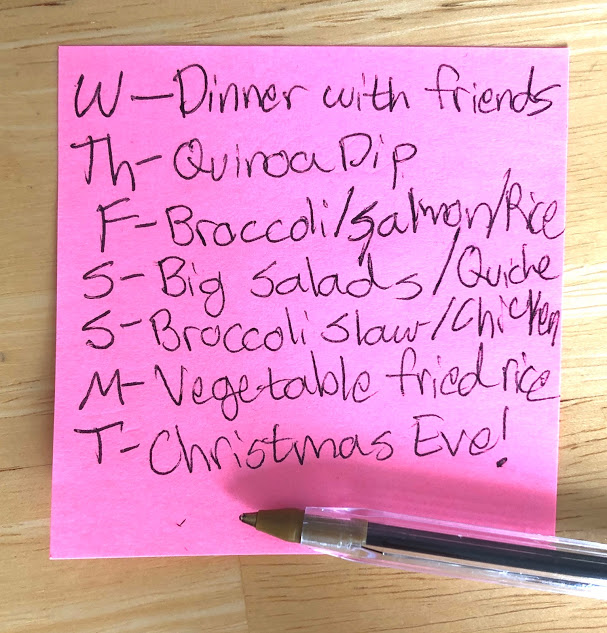 W-Dinner with friends
Th-Quinoa Dip
F-Broccoli/Salmon/Rice
S-Big Salads/Quiche
S-Broccoli slaw/Chicken
M-Vegetable fried rice
T-Christmas Eve!